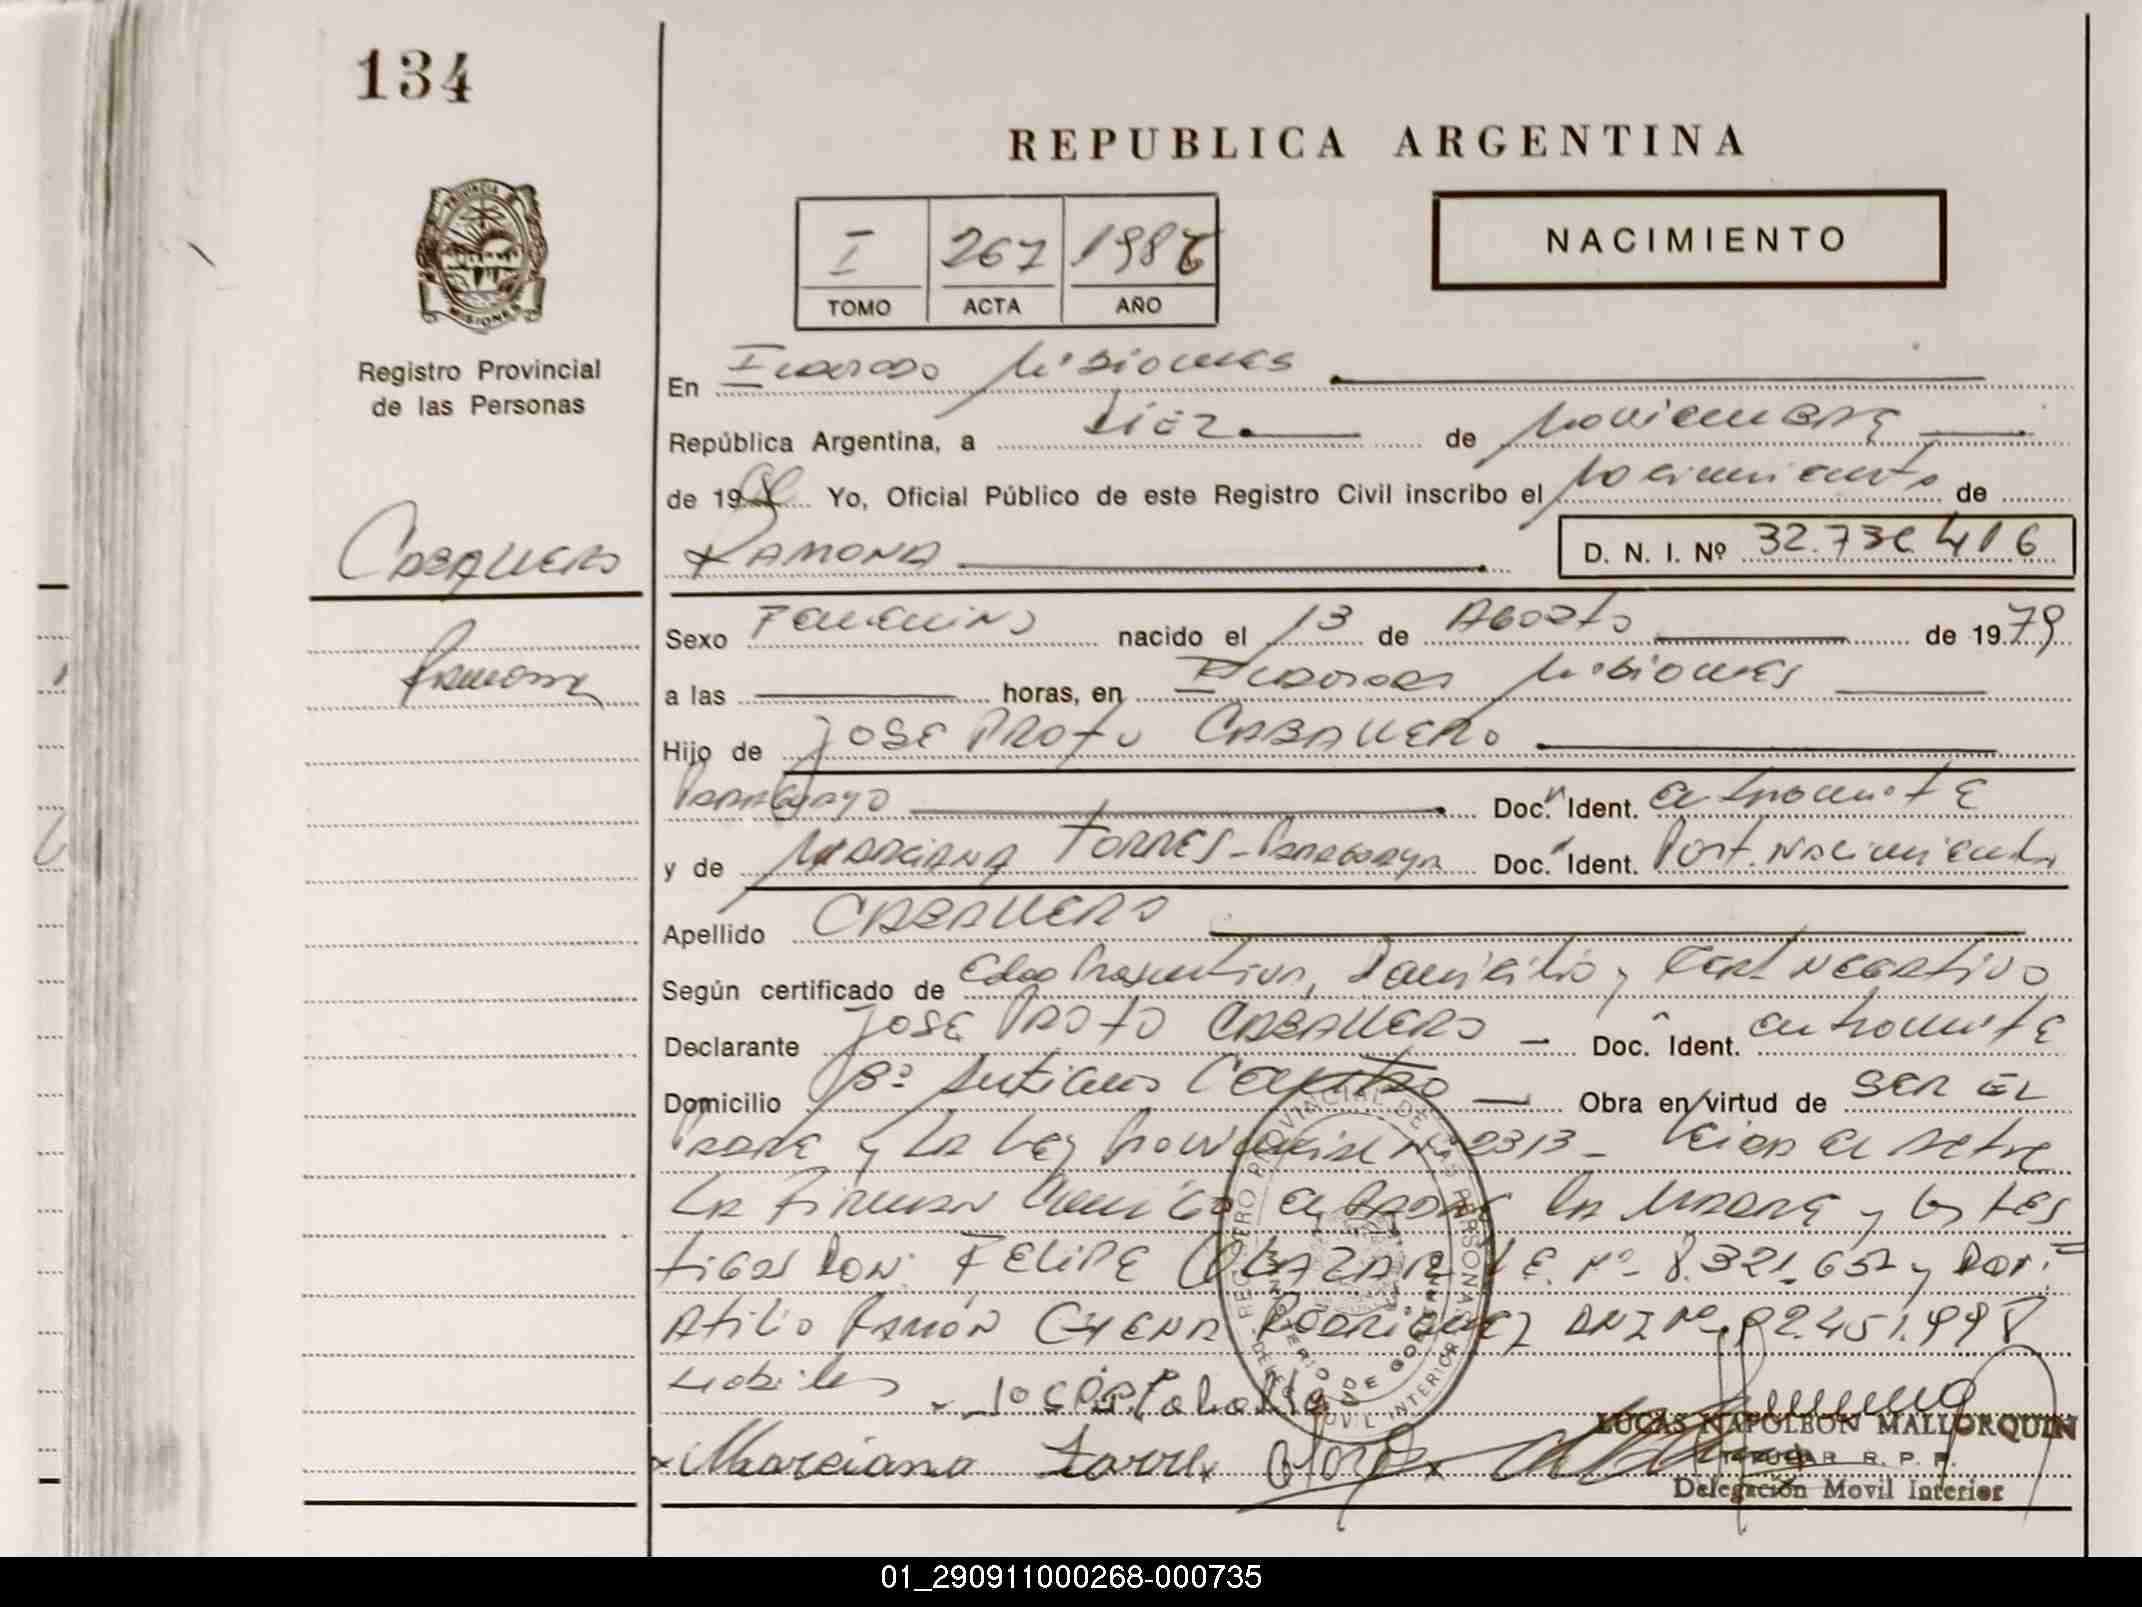 134
REPUBLICA ARGENTINA
PROVINCIA DE
MISIONES
Registro Provincial
de las Personas
I 267 1986
TOMO ACTA AÑO
NACIMIENTO
En Misiones
República Argentina, a Diez de Noviembre
de 19 Yo, Oficial Público de este Registro Civil inscribo el Nacimiento de
CABALLERO
RAMONA
D. N. I. Nº 32.73 416
Ramona
Sexo Femenino nacido el 13 de Agosto de 1979
a las horas, en Misiones
Hijo de JOSE PROTO CABALLERO
Paraguayo Doc. Ident. en tramite
y de Marciana TORRES - Paraguaya Doc. Ident. Post. Nacimiento
Apellido CABALLERO
Según certificado de Edad Presuntiva, Domicilio y Cert Negativo
Declarante JOSE PROTO CABALLERO - Doc. Ident. en tramite
Domicilio Bº Obra en virtud de SER EL
PADRE y la Ley Provincial Nº 2313 - Leida el Acta
la Firman Conmigo el Padre la Madre y los tes
tigos Don: FELIPE OLAZAR L.E. Nº 8.321.657 y Don:
Atilio Ramón GHENA RODRIGUEZ DNI Nº 92.451.998
habiles - Jose P. Caballe
Marciana Torre
REGISTRO PROVINCIAL DE LAS PERSONAS
MINISTERIO DE GOBIERNO
MOVIL INTERIOR
LUCAS NAPOLEON MALLORQUIN
TITULAR R. P. P.
Delegación Movil Interior
01_290911000268-000735